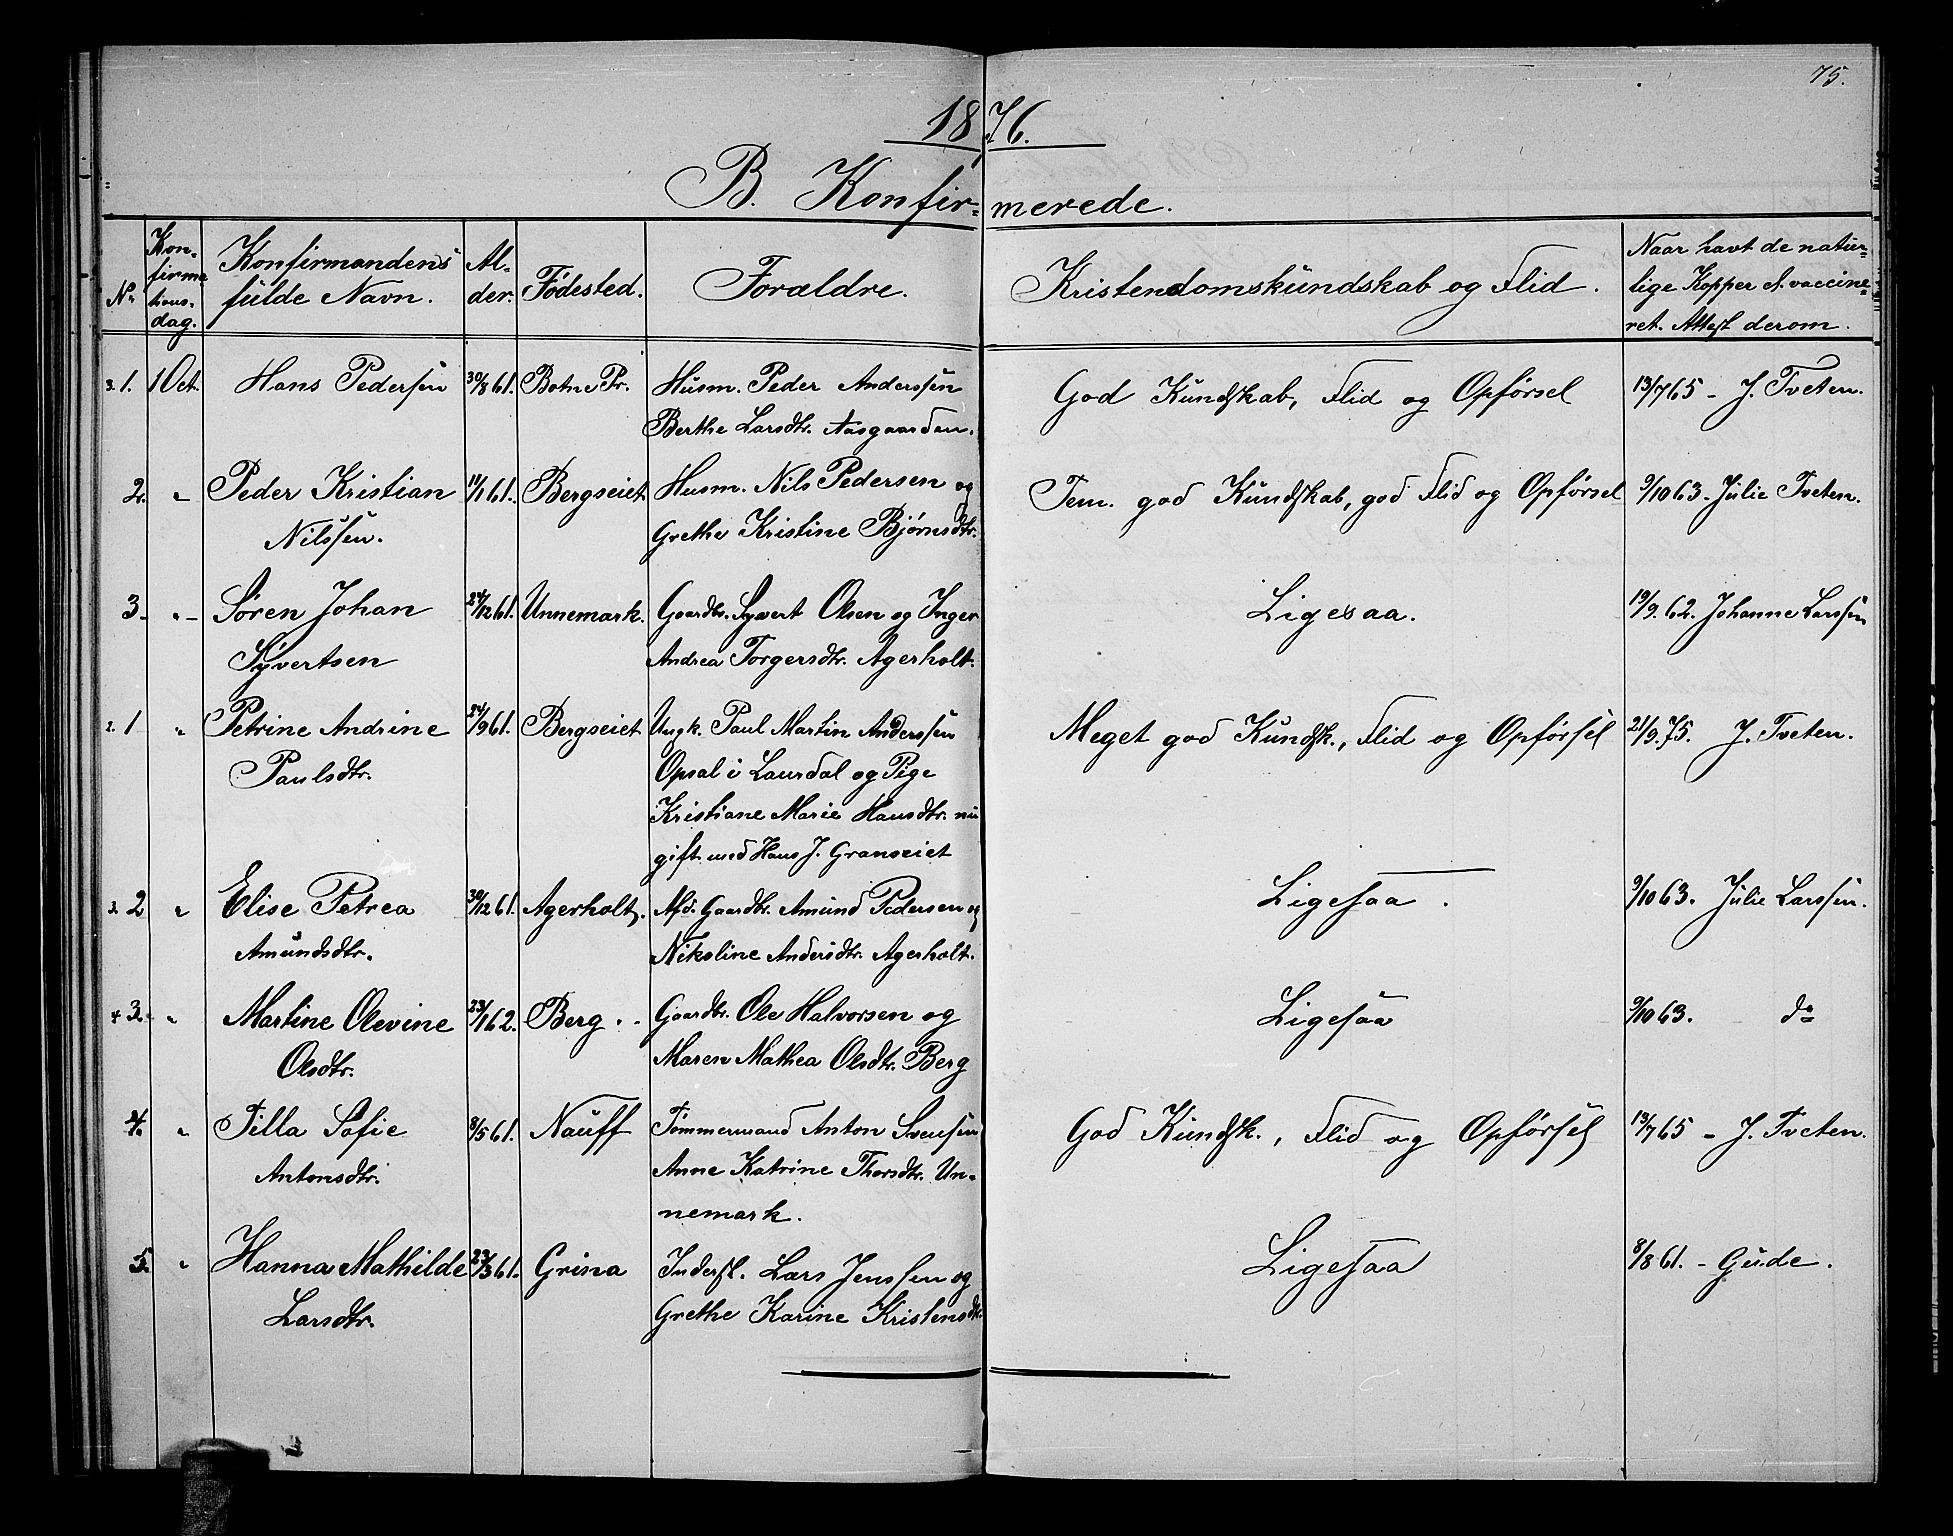 75.
1876.
B. Konfirmerede.
No
Kon-
firma
tions-
dag.
Konfirmandens
fulde Navn.
Al-
der.
Fødested.
Forældre.
Kristendomskundskab og Flid.
Naar havt de natur-
lige Kopper el. vaccine-
ret. Attest derom.
3. 1. 1 Oct. Hans Pedersen 30/8 61. Botne Pr. Husm. Peder Anderssen God Kundskab, Flid og Opførsel 13/7 65 - J. Tveten.
Berthe Larsdtr. Aasgaarden.
2. " Peder Kristian 11/1 61. Bergseiet Husm. Nils Pedersen og Tem. god Kundskab, god Flid og Opførsel 9/10 63 - Julie Tveten.
Nilssen. Grethe Kristine Bjørnsdtr.
3. " Søren Johan 24/12 61. Unnemark. Gaardbr. Syvert Olsen og Inger Ligesaa. 19/9. 62. Johanne Larssen
Syvertsen Andrea Torgersdtr. Agerholt.
2. 1 " Petrine Andrine 24/9 61. Bergseiet Ungk. Paul Martin Anderssen Meget god Kundsk., Flid og Opførsel 21/9. 75. J. Tveten.
Paulsdtr. Opsal i Laurdal og Pige
Kristiane Marie Hansdtr. nu
gift med Hans J. Granseiet
3. 2 " Elise Petrea 30/12 61. Agerholt. Afd. Gaardbr. Amund Pedersen og Ligesaa. 9/10 63. Julie Larssen.
Amundsdtr. Nikoline Andersdtr. Agerholt.
4 3. " Martine Olevine 23/1 62. Berg. Gaardbr. Ole Halvorsen og Ligesaa 9/10 63. do
Olsdtr. Maren Mathea Olsdtr. Berg
4. " Pilla Sofie 8/5 61. Nauff Tømmermand Anton Svensen God Kundsk., Flid og Opførsel 13/7 65 - J. Tveten.
Antonsdtr. Anne Katrine Thorsdtr. Un-
nemark.
5. " Hanna Mathilde 23/3 61. Grina Inderst. Lars Jenssen og Ligesaa 8/8 61. - Gude.
Larsdtr. Grethe Karine Kristensdtr.